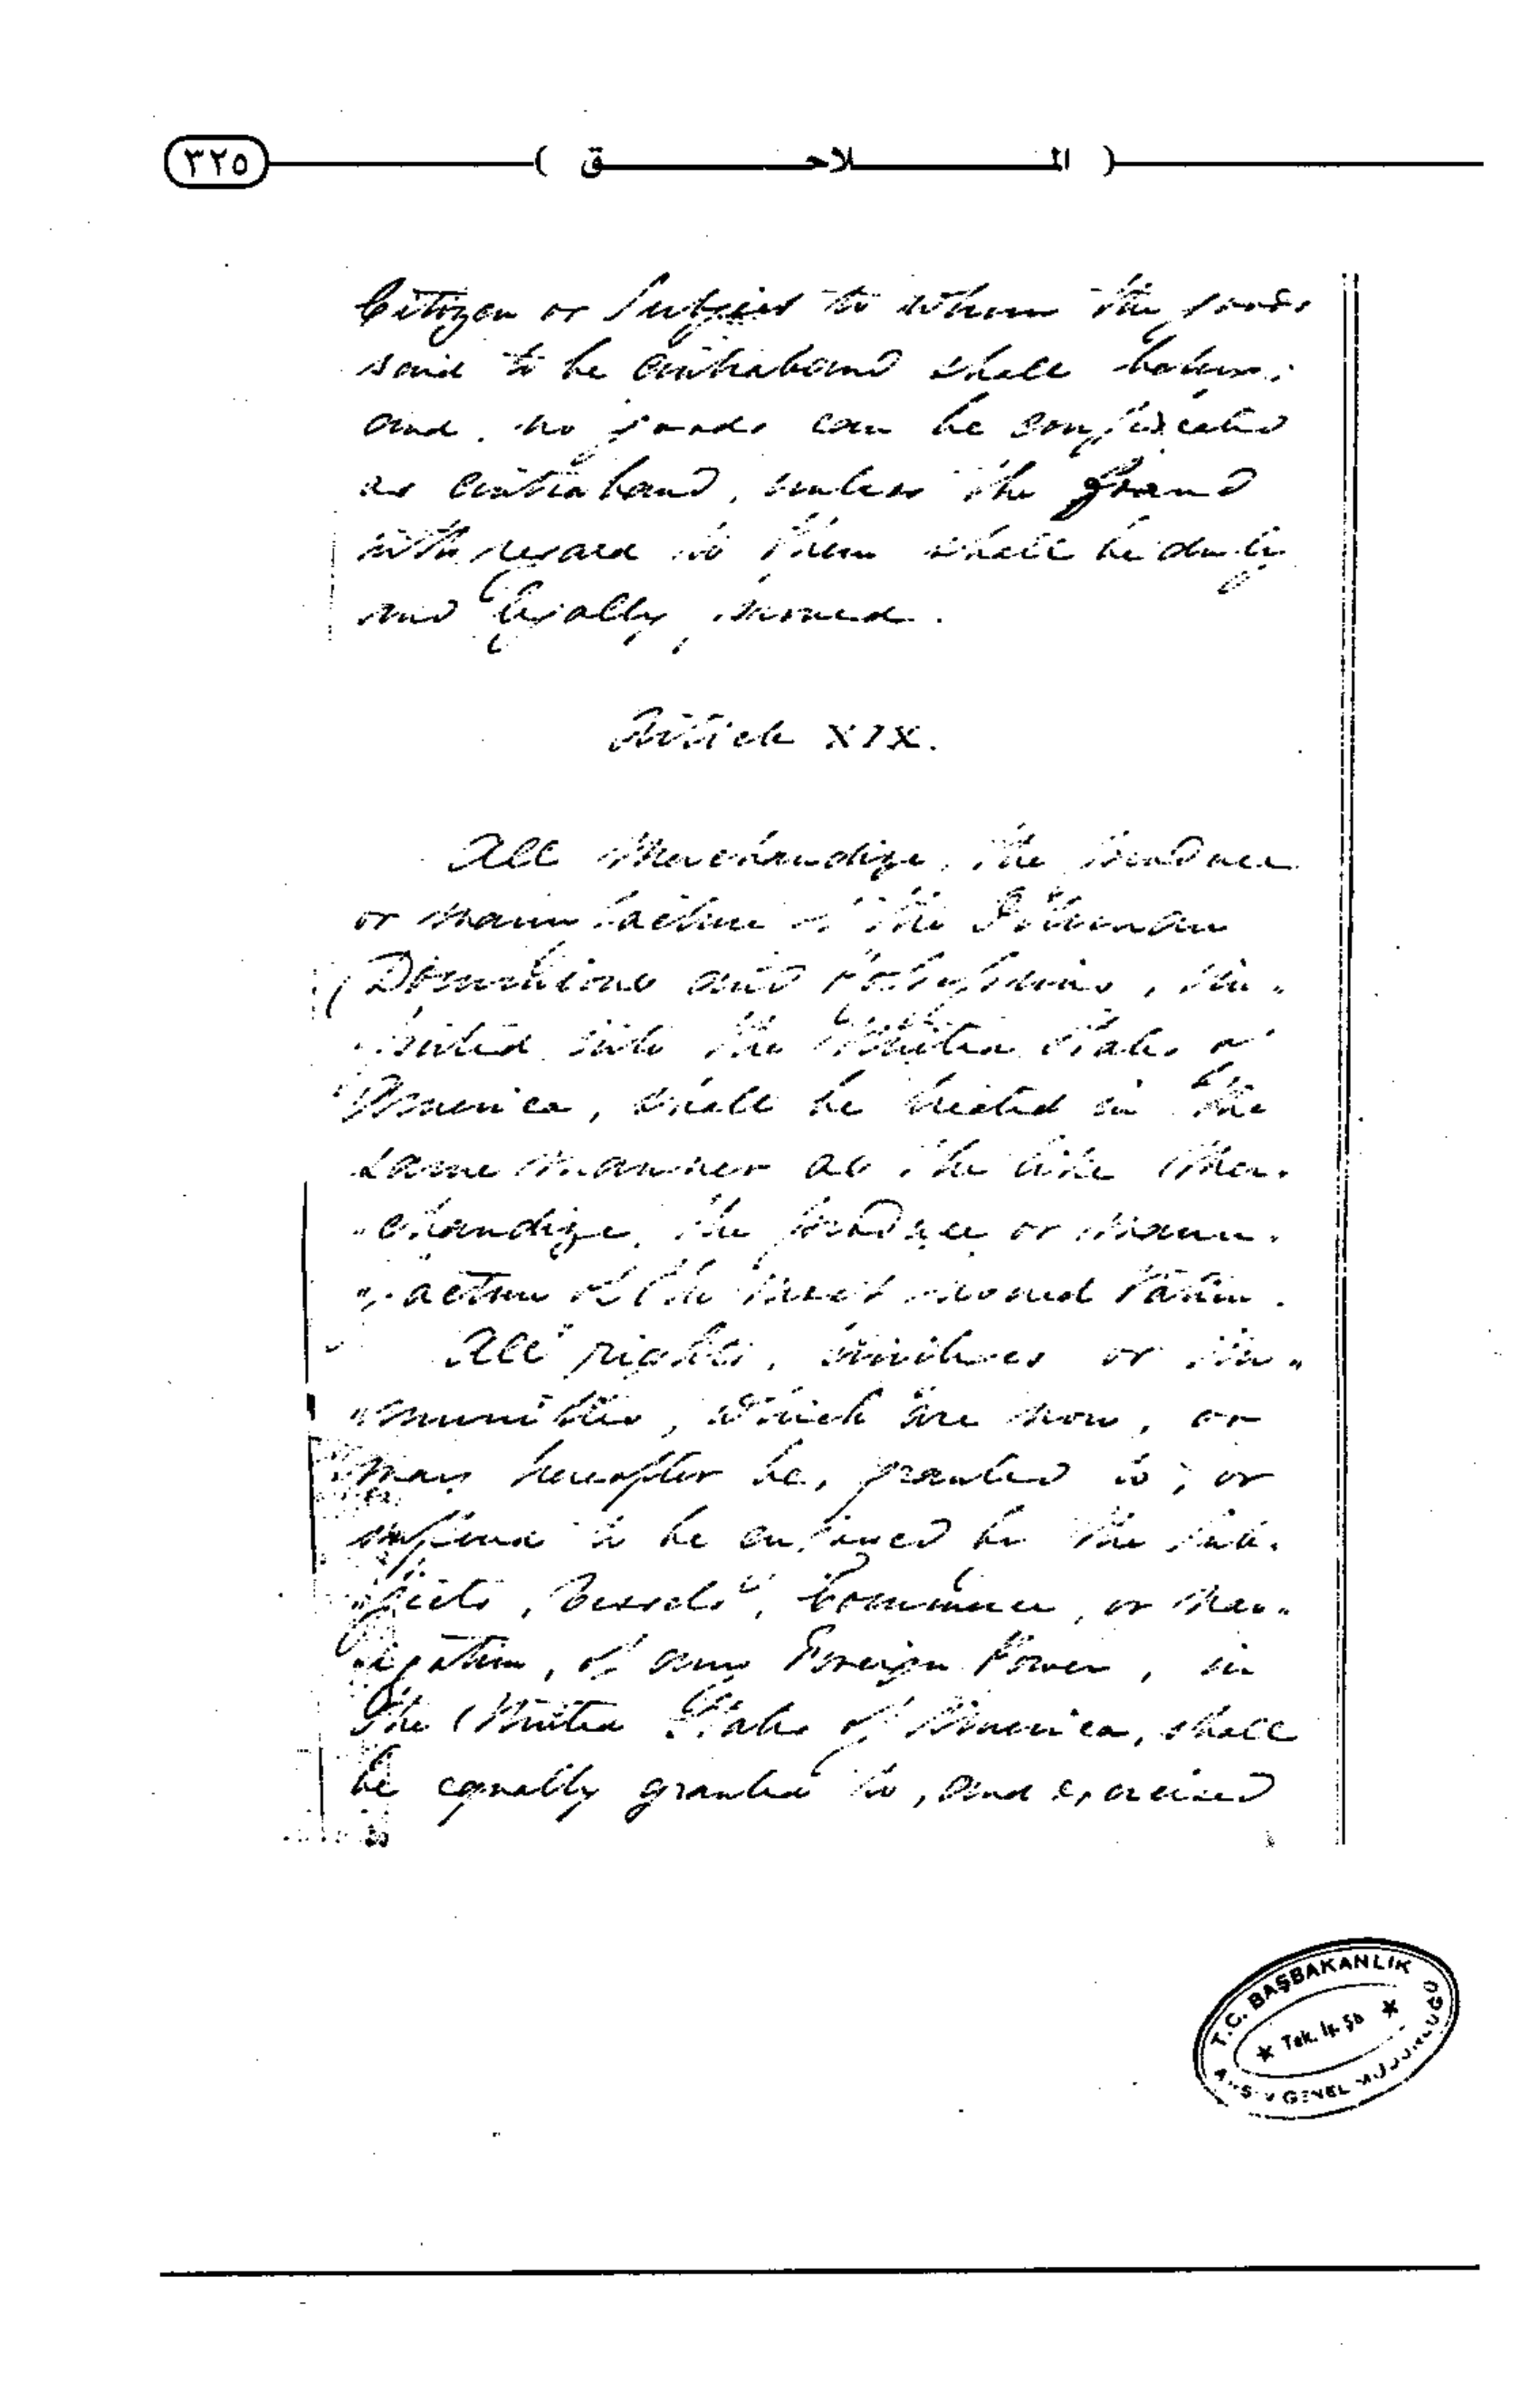 ٣٢٥
( الملاحق )
Citizen or Subject to whom the goods
said to be contraband shall belong;
and no goods can be confiscated
as contraband, unless the fraud
with regard to them shall be duly
and legally proved.
Article XIX.
All Merchandize, the produce
or manufacture of the Ottoman
Dominions and Possessions, im-
-ported into the United States of
America, shall be treated in the
same manner as the like Mer-
-chandize, the produce or manu-
-facture of the most favored Nation.
All rights, privileges or im-
-munities, which are now, or
may hereafter be, granted to, or
suffered to be enjoyed by the sub-
-jects, Vessels, Commerce, or nav-
-igation, of any Foreign Power, in
the United States of America, shall
be equally granted to, and exercised
T.C. BAŞBAKANLIK
★ Tek. İş. Şb ★
ARŞİV GENEL MÜDÜRLÜĞÜ